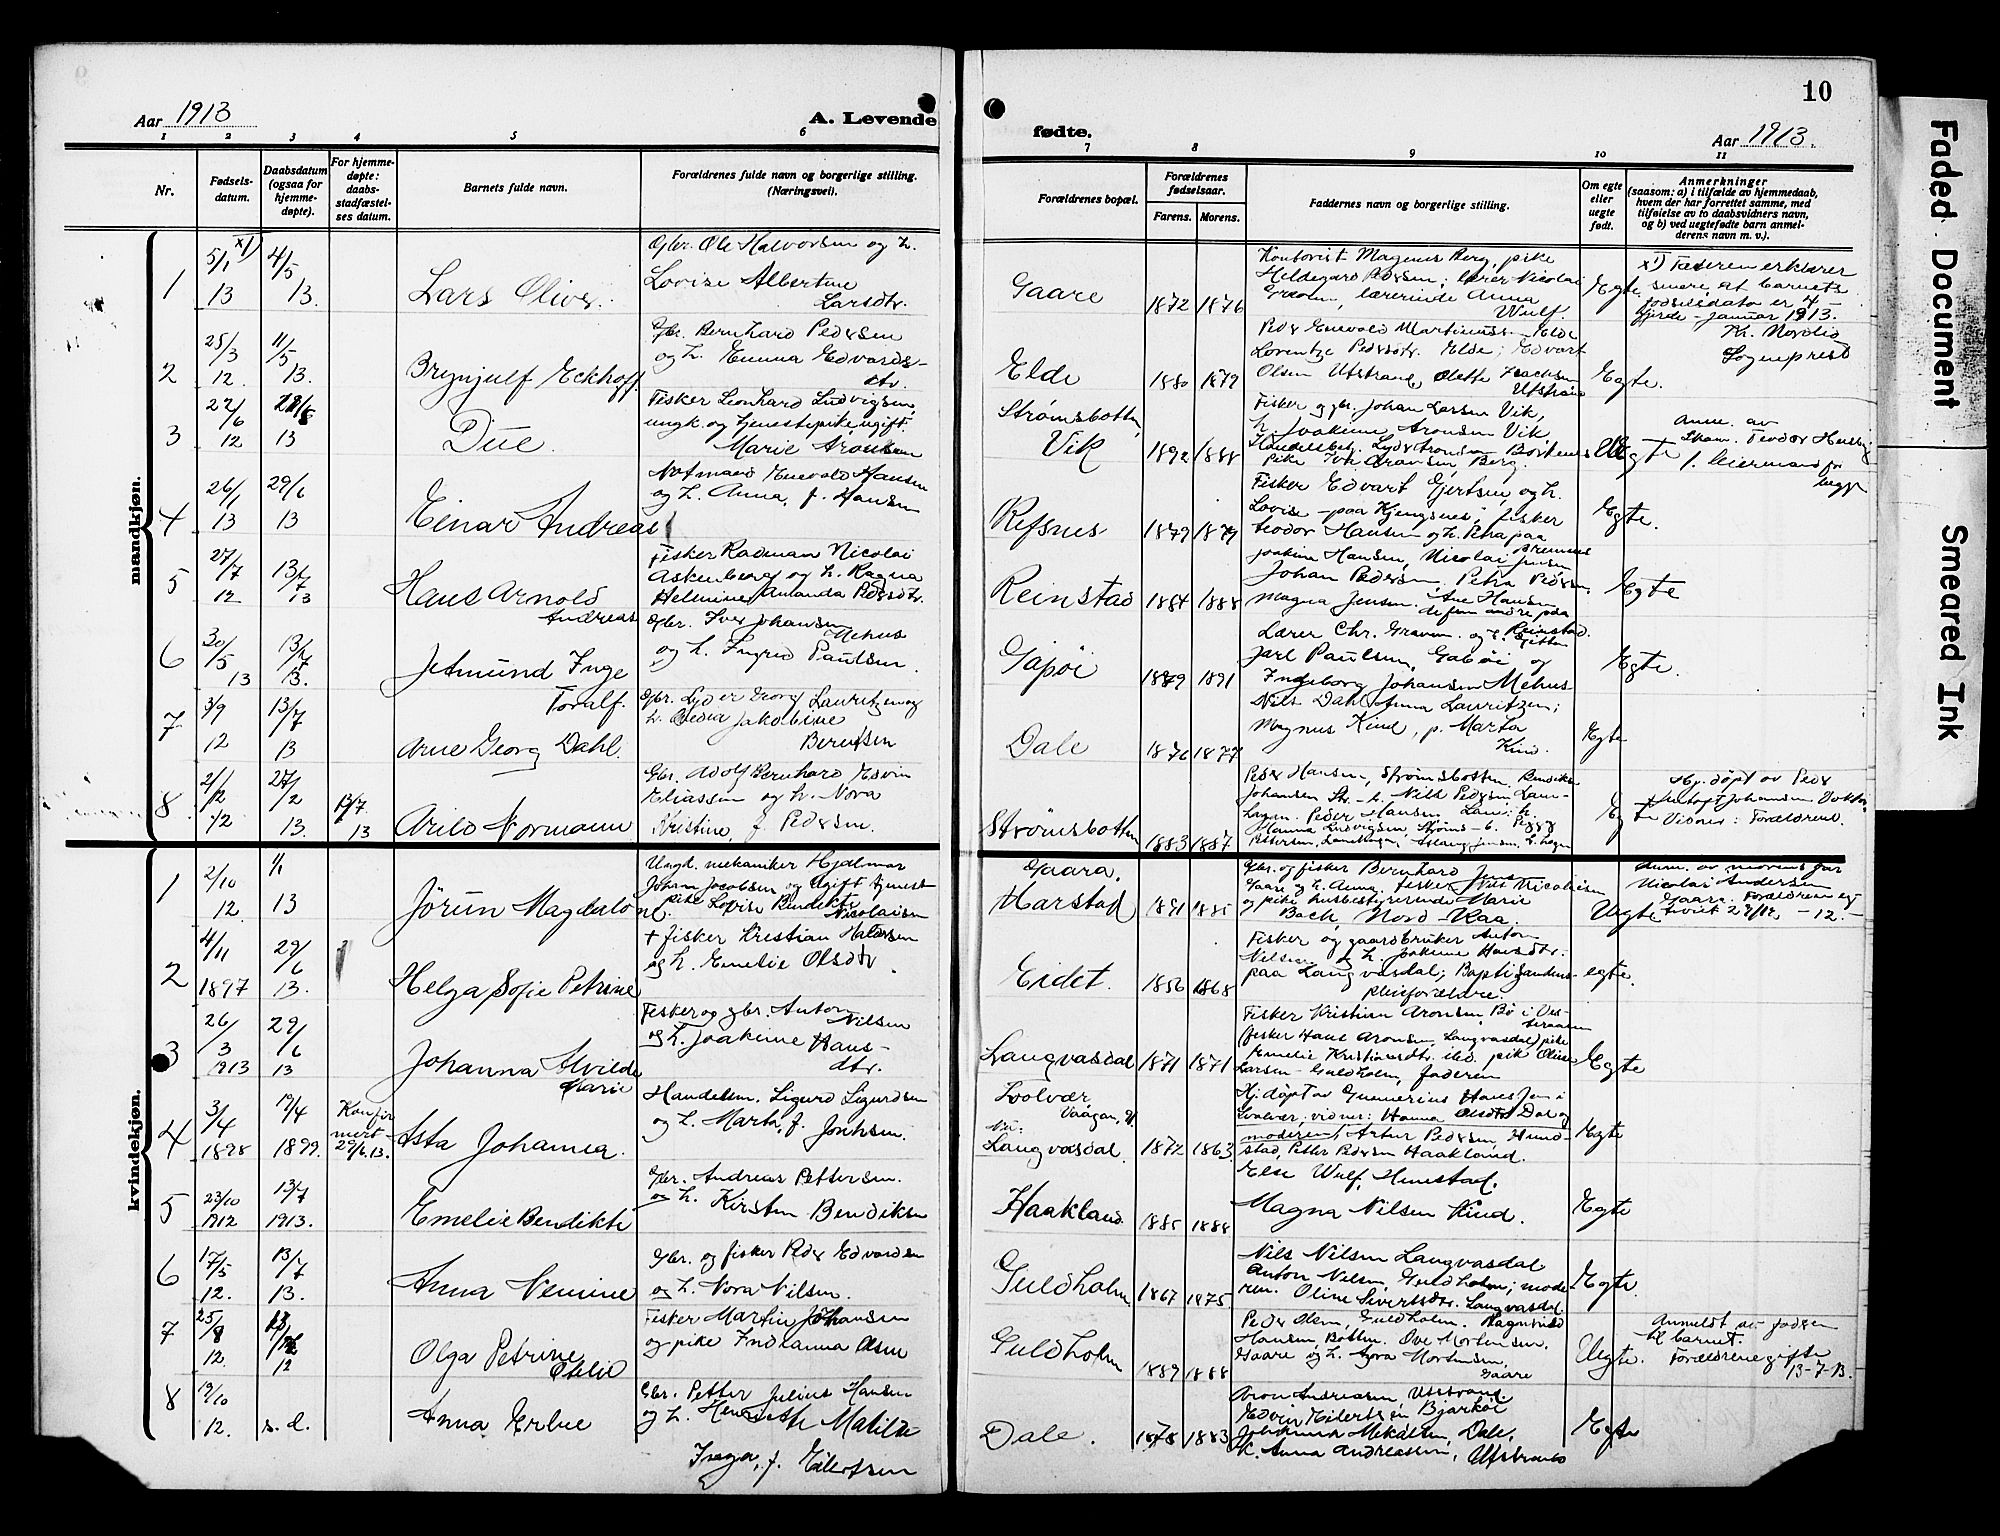 10
Aar 1913
A. Levende
fødte.
Aar 1913.
1 2 3 4 5 6
7 8 9 10 11
Nr.
Fødsels-
datum.
Daabsdatum
(ogsaa for
hjemme-
døpte).
For hjemme-
døpte:
daabs-
stadfæstel-
ses datum.
Barnets fulde navn.
Forældrenes fulde navn og borgerlige stilling.
(Næringsvei).
Forældrenes bopæl.
Forældrenes
fødselsaar.
Farens. Morens.
Faddernes navn og borgerlige stilling.
Om egte
eller
uegte
født.
Anmerkninger
(saasom: a) i tilfælde av hjemmedaab,
hvem der har forrettet samme, med
tilføielse av to daabsvidners navn,
og b) ved uegtefødte barn anmel-
derens navn m. v.).
mandkjøn.
1
5/1 x)
13
4/5
13.
Lars Oliver.
Gbr. Ole Halvorsen og h.
Lovise Albertine
Larsdtr.
Gaare
1872 1876
Kontorist Magnus Berg, pike
Hildegard Pedersen; lærer Nicolai
Gravem, lærerinde Anna
Wulf.
Egte
x) Faderen erklærer
senere at barnets
fødselsdato er 4 -
fjerde - januar 1913.
Kr. Nordlid
Sogneprest
2
25/3
12.
11/5
13.
Brynjulf Eckhoff
Gbr. Bernhard Pedersen
og h. Emma Edvards-
dtr.
Elde
1880 1879
Peder Enevold Martinuss. Elde
Lorentze Pedersdtr. Elde; Edvart
Olsen Utstrand, Olette Isachsen
Utstrand
Egte.
3
27/6
12
13
Due.
Fisker Leonhard Ludvigsen,
ungk. og tjenestepike ugift
Marie Aronsen
Strømsbotten,
Vik
1892 1888
Fisker og gbr. Johan Larsen Vik,
h. Joakime Aronsen Vik,
Uegte
Anm. av
4
26/1
13
29/6
13
Einar Andreas
Notmand Enevold Hansen
og h. Anna, f. Hansen
Refsnes
1879 1879
Fisker Edvart Gjertsen, og h.
Lovise paa Kjengsnes; fisker
Teodor Hansen og h. Petra paa
Egte.
5
27/7
12
13/7
13
Hans Arnold
Andreas
Fisker Radman Nicolai
Askenberg og h. Ragna
Helmine Amanda Pedersdtr.
Reinstad
1884 1888
Joakim Hansen, Nicolai Jensen
Johan Pedersen. Petra Peders.
Magna Jensen. Ane Hansen
de fem andre paa
Reinstad.
Egte
6
30/5
13
13/7
13.
Jetmund Inge
Toralf.
Gbr. Iver Johansen
Mehus
og h. Ingrid Paulsen.
Gapøi
1889 1891
Lærer Chr. Gravem. og h. Gitta
Jarl Paulsen, Gapøi og
Ingeborg Johansen Mehus
Egte.
7
3/9
12
13/7
13
Arne Georg Dahl.
Gbr. Lyder Georg Lauritzen og
h. Jakobine
Berntsen
Dale
1876 1877
Nils Dahl Anna Lauritzen;
Magnus Kind, p. Marta
Kind.
Egte
8
2/12
12
27/2
13.
13/7
13
Arild Normann
Gbr. Adolf Bernhard Edvin
Eliassen og h. Nora
Kristine, f. Pedersen.
Strømsbotten
1883 1887
Peder Hansen, Strømsbotten, Bendikte
Johansen Str. - h. Nils Pedersen Lau-
Egte
Hj. døpt av Peder
Vidner: Forældrene.
kvindekjøn.
1
2/10
12.
1/1
13
Jørun Magdalene
Ungd. mekaniker Hjalmar
Johan Jacobsen og Ugift tjenest
pike Lovise Bendikte
Nicolaisen
Gaara,
Harstad
1891 1885
Gbr. og fisker Bernhard Jens
Gaare og h. Anna. fisker Nils Nicolaisen
og pike husbestyrerinde Marie
Bach, Nord-Kaa.
Uegte
Anm. av morens far
Nicolai Andersen
Gaara. Forældrene
2
4/11
1897
29/6
13.
Helga Sofie Petrine
+ fisker Kristian
og h. Emelie Olsdtr.
Eidet.
1856 1868
Fisker og gaardbruker Anton
Nilsen og h. Joakime Hansdtr.
paa Langvasdal; Baptisandens
pleieforældre.
egte.
3
26/3
1913
29/6
13
Johanna Alvilde
Marie
Fisker og gbr. Anton
Nilsen
og h. Joakime Hans-
dtr.
Langvasdal
1871 1871
Fisker Kristian Aronsen Bø i Ves-
teraalen
(fisker Hans Aronsen, Langvasdal) pike
Emelie Kristiansdtr. ibd. pik Oline
Larsen - Guldholm, faderen
Egte
4
3/4
1898
19/4
1899.
Konfir
mert
29/6.13.
Asta Johanna.
Handelsm. Sigurd Sigurdsen
og h. Marta, f. Jonhsen.
Svolvær
Vaagan,
nu:
Langvasdal.
1872 1863
Hj. døpt av Gunnerius Hans Jen i
Svolvær, vidner: Hanna Olsdtr Dal og
moderen, Artur Pedersen, Hund-
stad, Petter Pedersen Haakland.
Egte
5
23/10
1912
13/7
1913.
Emelie Bendikte
Gbr. Andreas Pettersen.
og h. Kirsten Bendiksen
Haakland
1885 1888
Else Wulf, Hunstad.
Magna Nilsen Kind.
Egte
6
17/5
12.
13/7
13.
Anna Nemine
Gbr. og fisker Peder Edvardsen
og h. Nora Nilsen.
Guldholm
1867 1875
Nils Nilsen Langvasdal
Anton Nilsen, Guldholm; mode
ren. Oline Sivertsdtr. Langvasdal.
Egte.
7
25/8
12.
12
Olga Petrine
Otelie
Fisker Martin Johansen
og pike Indianna Olsen
Guldholm
1889 1888
Peder Olsen, Guldholm. Ragnhild
Hansen Botten. Ove Mortensen,
Gaare og h. Nora Mortensen,
Gaare
Uegte.
Anmeldt av faderen
til barnet.
Forældrene gifte
13-7-13.
8
19/10
12.
s. d.
Anna Erbue
Gbr. Petter Julius Hansen
og h. Henriette Matilde
Inger, f. Eilertsen
Dale.
1878 1883
Aron Andreasen, Utstrand.
Edvin Eilertsen Bjarkøi
Johanna Mikalsen, Dale,
K. Anna Andreassen, Utstrand
Egte
Faded Document
Smeared Ink